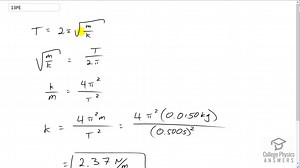 13PE
T = 2π√(m/k)
√(m/k) = T/2π
k/m = 4π²/T²
k = 4π²m/T² = 4π²(0.0150kg)/(0.500s)²
= 2.37 N/m
College Physics
ANSWERS